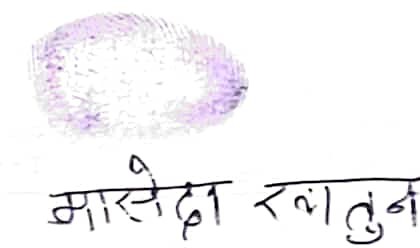 मासेदा खातुन